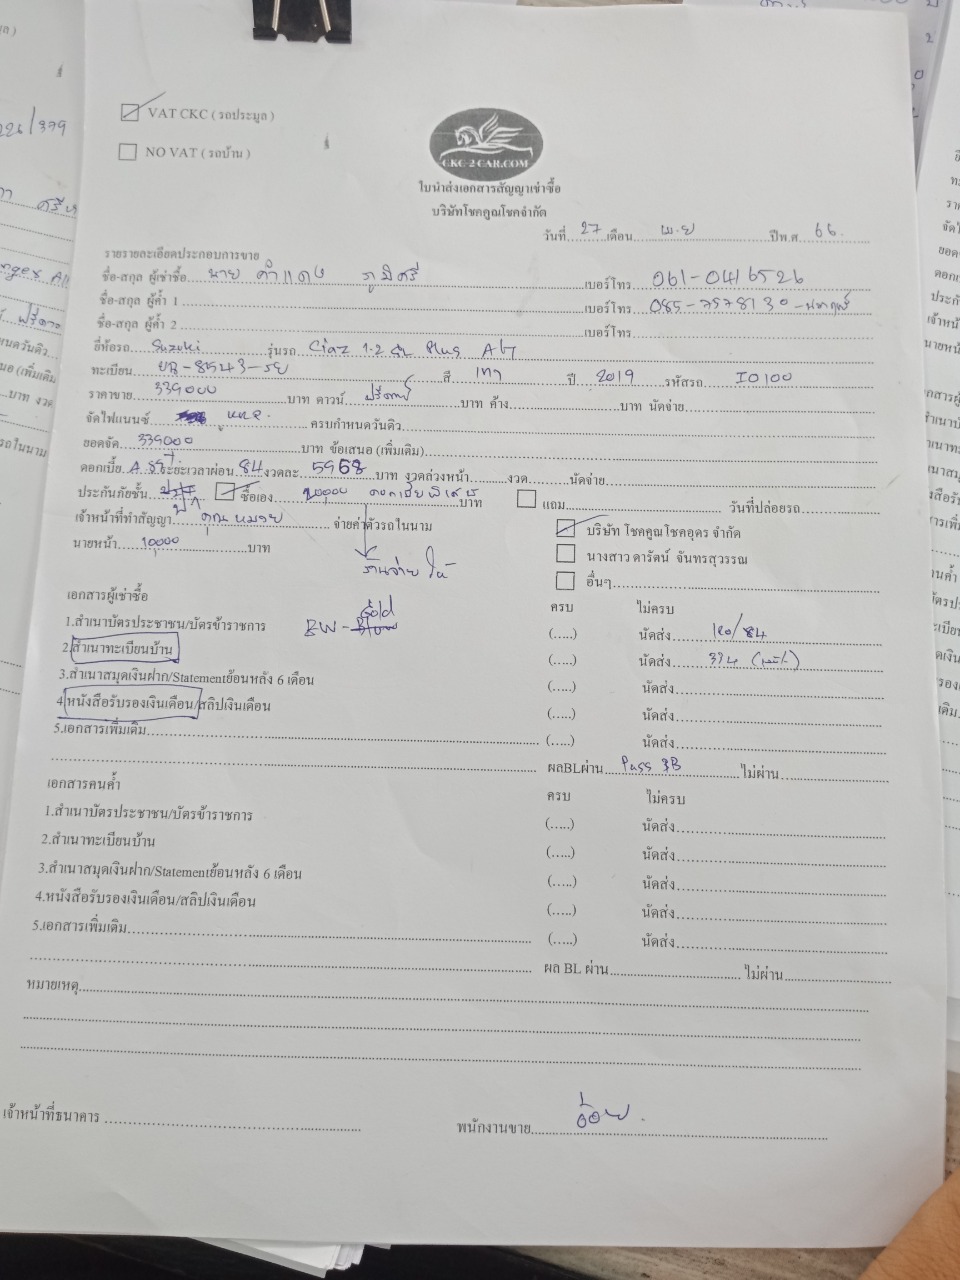 VAT CKC ( รถประมูล )
NO VAT ( รถบ้าน )
CKC-2-CAR.COM
ใบนำส่งเอกสารสัญญาเช่าซื้อ
บริษัทโชคคูณโชคจำกัด
วันที่ 27 เดือน เม.ย ปีพ.ศ 66
รายรายละเอียดประกอบการขาย
ชื่อ-สกุล ผู้เช่าซื้อ นาย คำแดง ภูมิศรี เบอร์โทร 061-0416526
ชื่อ-สกุล ผู้ค้ำ 1 เบอร์โทร 085-7578130
ชื่อ-สกุล ผู้ค้ำ 2 เบอร์โทร
ยี่ห้อรถ Suzuki รุ่นรถ Ciaz 1.2 GL Plus A/T
ทะเบียน 8543 สี เทา ปี 2019 รหัสรถ I0100
ราคาขาย 339000 บาท ดาวน์ ฟรีดาวน์ บาท ค้าง บาท นัดจ่าย
จัดไฟแนนซ์ ครบกำหนดวันดิว
ยอดจัด 339000 บาท ข้อเสนอ (เพิ่มเติม)
ดอกเบี้ย ระยะเวลาผ่อน 84 งวดละ 5968 บาท งวดล่วงหน้า งวด นัดจ่าย
ประกันภัยชั้น ซื้อเอง บาท แถม วันที่ปล่อยรถ
เจ้าหน้าที่ทำสัญญา จ่ายค่าตัวรถในนาม บริษัท โชคคูณโชคอุดร จำกัด
นายหน้า 10,000 บาท นางสาว ดารัตน์ จันทรสุวรรณ
ร้านจ่ายให้ อื่นๆ
เอกสารผู้เช่าซื้อ ครบ ไม่ครบ
Gold
1.สำเนาบัตรประชาชน/บัตรข้าราชการ BW- (.....) นัดส่ง 120/84
2.สำเนาทะเบียนบ้าน (.....) นัดส่ง
3.สำเนาสมุดเงินฝาก/Statementย้อนหลัง 6 เดือน (.....) นัดส่ง
4.หนังสือรับรองเงินเดือน/สลิปเงินเดือน (.....) นัดส่ง
5.เอกสารเพิ่มเติม (.....) นัดส่ง
ผลBLผ่าน Pass ไม่ผ่าน
เอกสารคนค้ำ ครบ ไม่ครบ
1.สำเนาบัตรประชาชน/บัตรข้าราชการ (.....) นัดส่ง
2.สำเนาทะเบียนบ้าน (.....) นัดส่ง
3.สำเนาสมุดเงินฝาก/Statementย้อนหลัง 6 เดือน (.....) นัดส่ง
4.หนังสือรับรองเงินเดือน/สลิปเงินเดือน (.....) นัดส่ง
5.เอกสารเพิ่มเติม (.....) นัดส่ง
ผล BL ผ่าน ไม่ผ่าน
หมายเหตุ
เจ้าหน้าที่ธนาคาร พนักงานขาย อ้อย